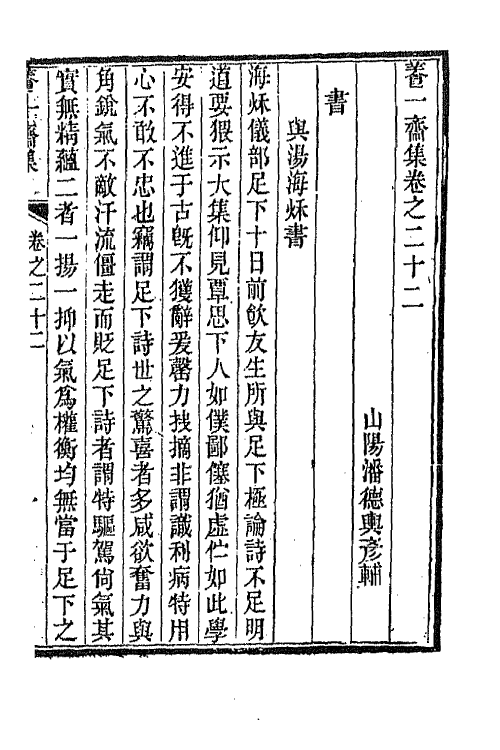 養一齋集卷之二十二
山陽潘德輿彥輔
書
與湯海秌書
海秌儀部足下十日前飮友生所與足下極論詩不足明
道要猥示大集仰見覃思下人如僕鄙僿猶虛伫如此學
安得不進于古旣不獲辭爰罄力抉摘非謂識利病特用
心不敢不忠也竊謂足下詩世之驚喜者多咸欲奮力與
角銳氣不敵汗流僵走而貶足下詩者謂特驅駕尙氣其
實無精蘊二者一揚一抑以氣爲權衡均無當于足下之
養一齋集
卷之二十二